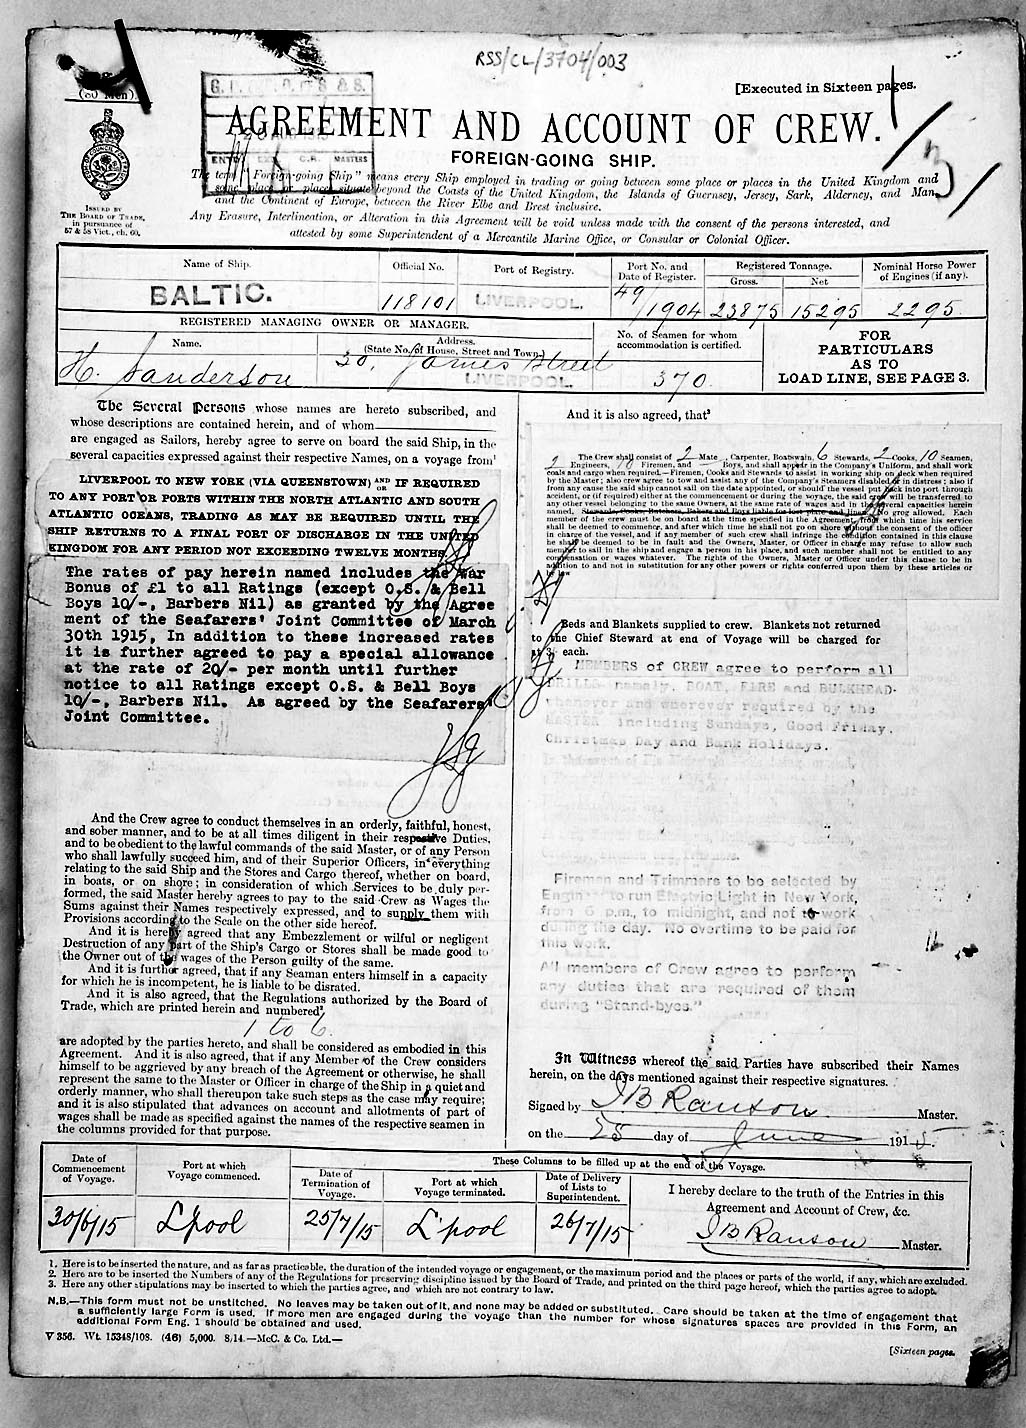 RSS/CL/3704/003
[Executed in Sixteen pages.
(80 Men).
AGREEMENT AND ACCOUNT OF CREW.
FOREIGN-GOING SHIP.
The term "Foreign-going Ship" means every Ship employed in trading or going between some place or places in the United Kingdom and
some place or places situate beyond the Coasts of the United Kingdom, the Islands of Guernsey, Jersey, Sark, Alderney, and Man,
and the Continent of Europe, between the River Elbe and Brest inclusive.
Any Erasure, Interlineation, or Alteration in this Agreement will be void unless made with the consent of the persons interested, and
attested by some Superintendent of a Mercantile Marine Office, or Consular or Colonial Officer.
ISSUED BY
THE BOARD OF TRADE,
in pursuance of
57 & 58 Vict., ch. 60.
Name of Ship.
Official No.
Port of Registry.
Port No. and
Date of Register.
Registered Tonnage.
Gross.
Net
Nominal Horse Power
of Engines (if any).
BALTIC.
118101
LIVERPOOL.
49/1904
23875
15295
2295
REGISTERED MANAGING OWNER OR MANAGER.
Name.
Address.
(State No. of House, Street and Town.)
No. of Seamen for whom
accommodation is certified.
FOR
PARTICULARS
AS TO
LOAD LINE, SEE PAGE 3.
H. Sanderson
30, James Street
LIVERPOOL.
370
The Several Persons whose names are hereto subscribed, and
whose descriptions are contained herein, and of whom
are engaged as Sailors, hereby agree to serve on board the said Ship, in the
several capacities expressed against their respective Names, on a voyage from¹
LIVERPOOL TO NEW YORK (VIA QUEENSTOWN) AND OR IF REQUIRED
TO ANY PORT OR PORTS WITHIN THE NORTH ATLANTIC AND SOUTH
ATLANTIC OCEANS, TRADING AS MAY BE REQUIRED UNTIL THE
SHIP RETURNS TO A FINAL PORT OF DISCHARGE IN THE UNITED
KINGDOM FOR ANY PERIOD NOT EXCEEDING TWELVE MONTHS.
The rates of pay herein named includes the War
Bonus of £1 to all Ratings (except O.S. & Bell
Boys 10/-, Barbers Nil) as granted by the Agree
ment of the Seafarers' Joint Committee of March
30th 1915, In addition to these increased rates
it is further agreed to pay a special allowance
at the rate of 20/- per month until further
notice to all Ratings except O.S. & Bell Boys
10/-, Barbers Nil. As agreed by the Seafarers'
Joint Committee.
And the Crew agree to conduct themselves in an orderly, faithful, honest,
and sober manner, and to be at all times diligent in their respective Duties,
and to be obedient to the lawful commands of the said Master, or of any Person
who shall lawfully succeed him, and of their Superior Officers, in everything
relating to the said Ship and the Stores and Cargo thereof, whether on board,
in boats, or on shore; in consideration of which Services to be duly per-
formed, the said Master hereby agrees to pay to the said Crew as Wages the
Sums against their Names respectively expressed, and to supply them with
Provisions according to the Scale on the other side hereof.
And it is hereby agreed that any Embezzlement or wilful or negligent
Destruction of any part of the Ship's Cargo or Stores shall be made good to
the Owner out of the wages of the Person guilty of the same.
And it is further agreed, that if any Seaman enters himself in a capacity
for which he is incompetent, he is liable to be disrated.
And it is also agreed, that the Regulations authorized by the Board of
Trade, which are printed herein and numbered²
1 to 6.
are adopted by the parties hereto, and shall be considered as embodied in this
Agreement. And it is also agreed, that if any Member of the Crew considers
himself to be aggrieved by any breach of the Agreement or otherwise, he shall
represent the same to the Master or Officer in charge of the Ship in a quiet and
orderly manner, who shall thereupon take such steps as the case may require;
and it is also stipulated that advances on account and allotments of part of
wages shall be made as specified against the names of the respective seamen in
the columns provided for that purpose.
And it is also agreed, that³
The Crew shall consist of 2 Mate , Carpenter, Boatswain, 6 Stewards, 2 Cooks, 10 Seamen,
2 Engineers, 10 Firemen, and — Boys, and shall appear in the Company's Uniform, and shall work
coals and cargo when required.—Firemen, Cooks and Stewards to assist in working ship on deck when required
by the Master; also crew agree to tow and assist any of the Company's Steamers disabled or in distress; also if
from any cause the said ship cannot sail on the date appointed, or should the vessel put back into port through
accident, or (if required) either at the commencement or during the voyage, the said crew will be transferred to
any other vessel belonging to the same Owners, at the same rate of wages and in the several capacities herein
named. Stewards, Cooks, Butchers, Bakers and Boys liable for lost plate and linen. No grog allowed. Each
member of the crew must be on board at the time specified in the Agreement, from which time his service
shall be deemed to commence, and after which time he shall not go on shore without the consent of the officer
in charge of the vessel, and if any member of such crew shall infringe the condition contained in this clause
he shall be deemed to be in fault and the Owners, Master, or Officer in charge may refuse to allow such
member to sail in the ship and engage a person in his place, and such member shall not be entitled to any
compensation or wages whatever. The rights of the Owners, Master or Officer under this clause to be in
addition to and not in substitution for any other powers or rights conferred upon them by these articles or
by law
Beds and Blankets supplied to crew. Blankets not returned
to the Chief Steward at end of Voyage will be charged for
at 3/- each.
MEMBERS of CREW agree to perform all
DRILLS namely, BOAT, FIRE and BULKHEAD-
whenever and wherever required by the
MASTER including Sundays, Good Friday,
Christmas Day and Bank Holidays.
Firemen and Trimmers to be selected by
Engineer to run Electric Light in New York,
from 6 p.m., to midnight, and not to work
during the day. No overtime to be paid for
this work.
All members of Crew agree to perform
any duties that are required of them
during "Stand-byes."
In Witness whereof the said Parties have subscribed their Names
herein, on the days mentioned against their respective signatures.
Signed by J B Ranson Master.
on the 25 day of June 1915.
Date of
Commencement
of Voyage.
Port at which
Voyage commenced.
These Columns to be filled up at the end of the Voyage.
Date of
Termination of
Voyage.
Port at which
Voyage terminated.
Date of Delivery
of Lists to
Superintendent.
I hereby declare to the truth of the Entries in this
Agreement and Account of Crew, &c.
30/6/15
L'pool
25/7/15
L'pool
26/7/15
J B Ranson Master.
1. Here is to be inserted the nature, and as far as practicable, the duration of the intended voyage or engagement, or the maximum period and the places or parts of the world, if any, which are excluded.
2. Here are to be inserted the Numbers of any of the Regulations for preserving discipline issued by the Board of Trade, and printed on the third page hereof, which the parties agree to adopt.
3. Here any other stipulations may be inserted to which the parties agree, and which are not contrary to law.
N.B.—This form must not be unstitched. No leaves may be taken out of it, and none may be added or substituted. Care should be taken at the time of engagement that
a sufficiently large Form is used. If more men are engaged during the voyage than the number for whose signatures spaces are provided in this Form, an
additional Form Eng. 1 should be obtained and used.
V 356. Wt. 15348/108. (46) 5,000. 8/14.—McC. & Co. Ltd.—
[Sixteen pages.